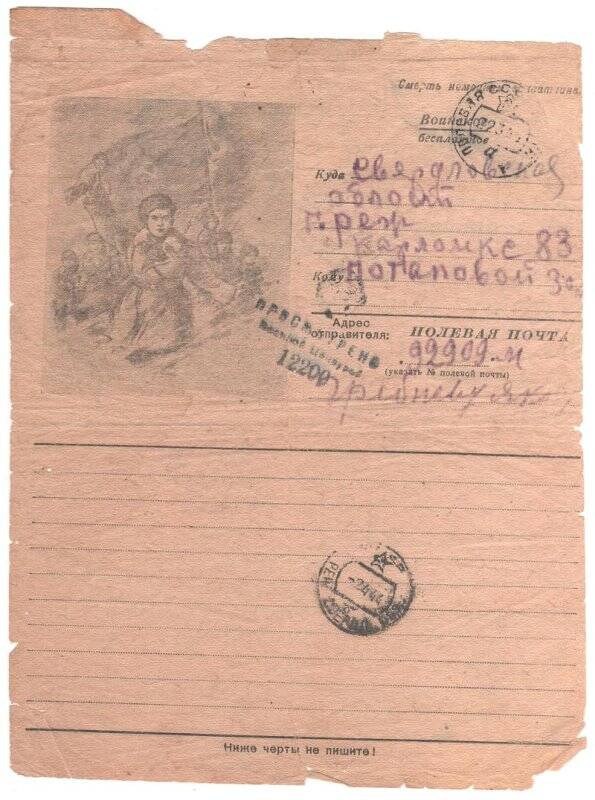 Смерть немецким
Воинское
бесплатное
Куда Свердловская
област
г. Реж
Карломкс 83
Кому Потаповой
ПРОСМОТРЕНО
Военной Цензурой
12209
Адрес
отправителя: ПОЛЕВАЯ ПОЧТА
92909-м
(указать № полевой почты)
РЕЖ
Ниже черты не пишите!